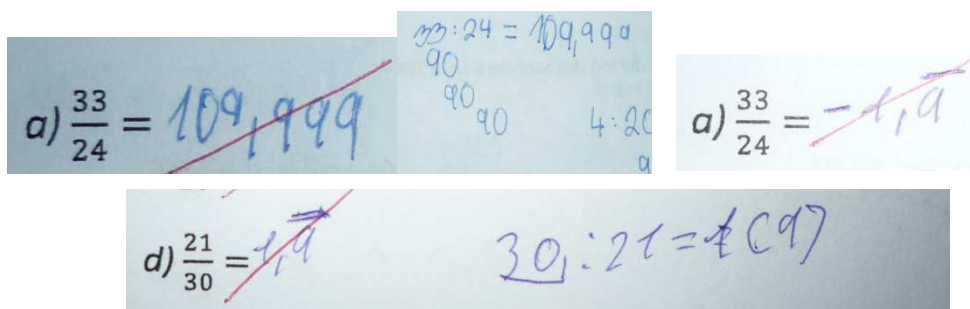 a) 33/24 = 109,999
33:24 = 109,999
90
90
90
4:20
9
a) 33/24 = -1,9̅
d) 21/30 = 1,9̅
30,:21=1(9)